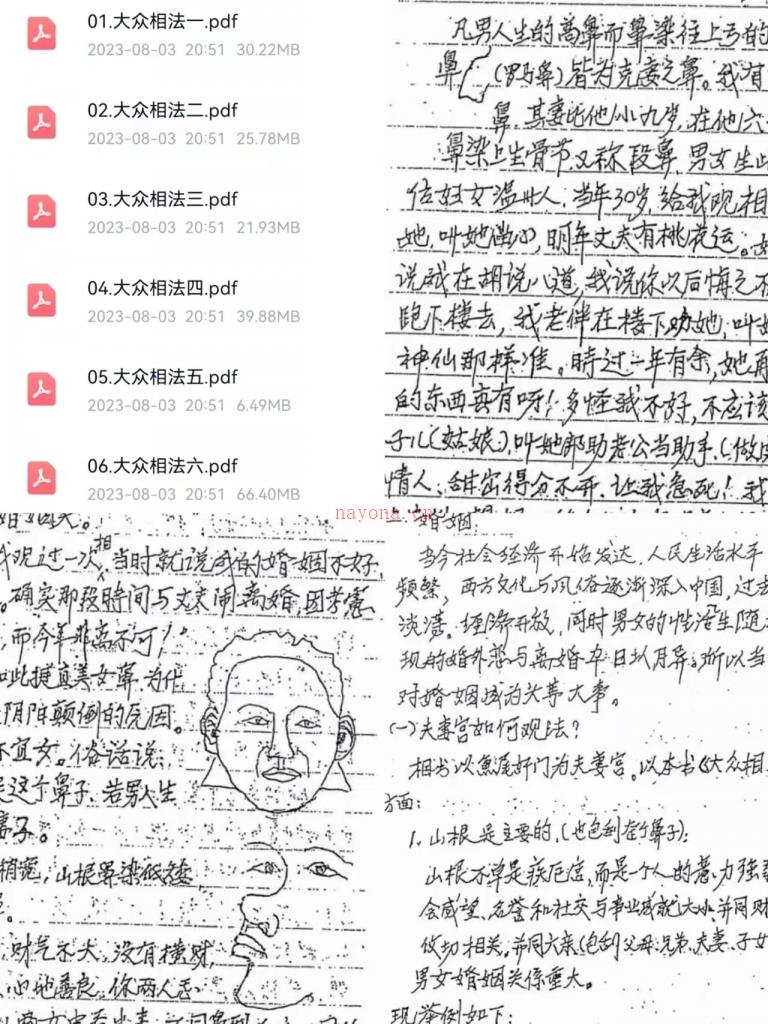 01.大众相法一.pdf
2023-08-03 20:51 30.22MB
02.大众相法二.pdf
2023-08-03 20:51 25.78MB
03.大众相法三.pdf
2023-08-03 20:51 21.93MB
04.大众相法四.pdf
2023-08-03 20:51 39.88MB
05.大众相法五.pdf
2023-08-03 20:51 6.49MB
06.大众相法六.pdf
2023-08-03 20:51 66.40MB
凡男人生的高鼻而鼻梁往上弓的
鼻 (罗马鼻)皆为克妻之鼻。我有
鼻 其妻比他小九岁,在他六
鼻梁上生骨节,又称段鼻,男女生
位妇女温州人,当年30岁,给我观相
她,叫她 明年丈夫有桃花运。
说我在胡说八道,我说你以后悔之不
跑下楼去,我老伴在楼下劝她,叫
神仙那样准。時过一年有余,她再
的东西真有呀!多怪我不好,不应该
子儿(姑娘)叫她帮助老公当助手,(做
情人,甜密得分不开,让我急死!我
nayona.cn
我观过一次相,当时就说我的婚姻不好,
。确实那段時间与丈夫闹离婚,因考虑
,而今年非离不可!
如此提真美女鼻,为什
阴阳颠倒的究因。
不宜女。俗话说:
是这个鼻子,若男人生
鼻子。
稍宽,山根鼻梁低矮,
,财气不大,没有横财,
,心地善良,你两人
二婚姻:
当今社会经济开始发达,人民生活水平
频繁,西方文化与风俗逐渐深入中国,过去
淡薄。经济开放,同时男女的性活生随
现的婚外恋与离婚率日以月异,所以当
对婚姻成为头等大事。
(一)夫妻宫如何观法?
相书以鱼尾奸门为夫妻宫。以本书《大众相
方面:
1、山根是主要的,(也包刮在鼻子):
山根不单是疾厄宫,而是一个人的意力强
会威望、名誉和社交与事业成就大小,并同财
攸切相关。并同六亲(包刮父母、兄弟、夫妻、子女
男女婚姻关係重大。
现举例如下: